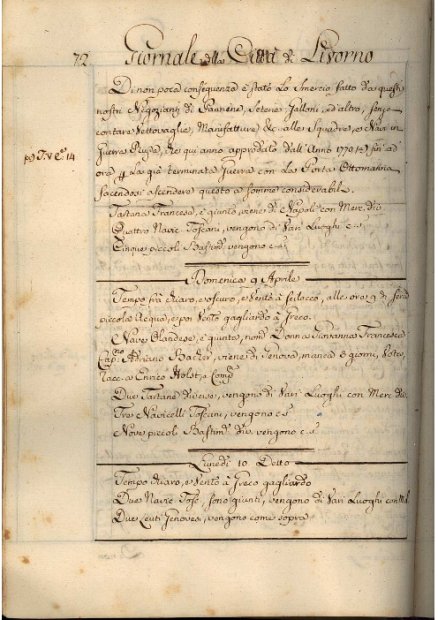 72 Giornale della Città di Livorno
Di non poca conseguenza è stato lo smercio fatto da questi
nostri Negozianti di Pannine, Seterie, Galloni, ed altro, senza
contare Vettovaglie, Manifatture &c. alle Squadre, e Navi in
Guerra Russe, che qui anno approdato dall'Anno 1770 fin ad
ora, la già terminata Guerra con la Porta Ottomanna
facendosi ascendere questo a somme considerabili.
Tartana Francese, è giunta, viene di Napoli con Merc. div.
Quattro Navic. Toscani, vengono di Vari Luoghi c. s.
Cinque piccoli Bastim. vengono c. s.
Domenica 9 Aprile
Tempo frà chiaro, e oscuro, e Vento à Scilocco, alle ore 9 di sera
piccola Acqua, e poi Vento gagliardo à Greco.
Nave Olandese, è giunta, nom. Donna Giovanna Francesca
Cap.º Adriano Bacler, viene di Genova, manca 3 giorni, Voto,
Racc. a Enrico Holst, e Comp.
Due Tartane diverse, vengono di Vari Luoghi con Merc. div.
Tre Navicelli Toscani, vengono c. s.
Nove piccoli Bastim. div. vengono c. s.
Lunedi 10 Detto
Tempo chiaro, e Vento à Greco gagliardo
Due Navic. Tosc., sono giunti, vengono di Vari Luoghi con
Due Leuti Genovesi, vengono come sopra